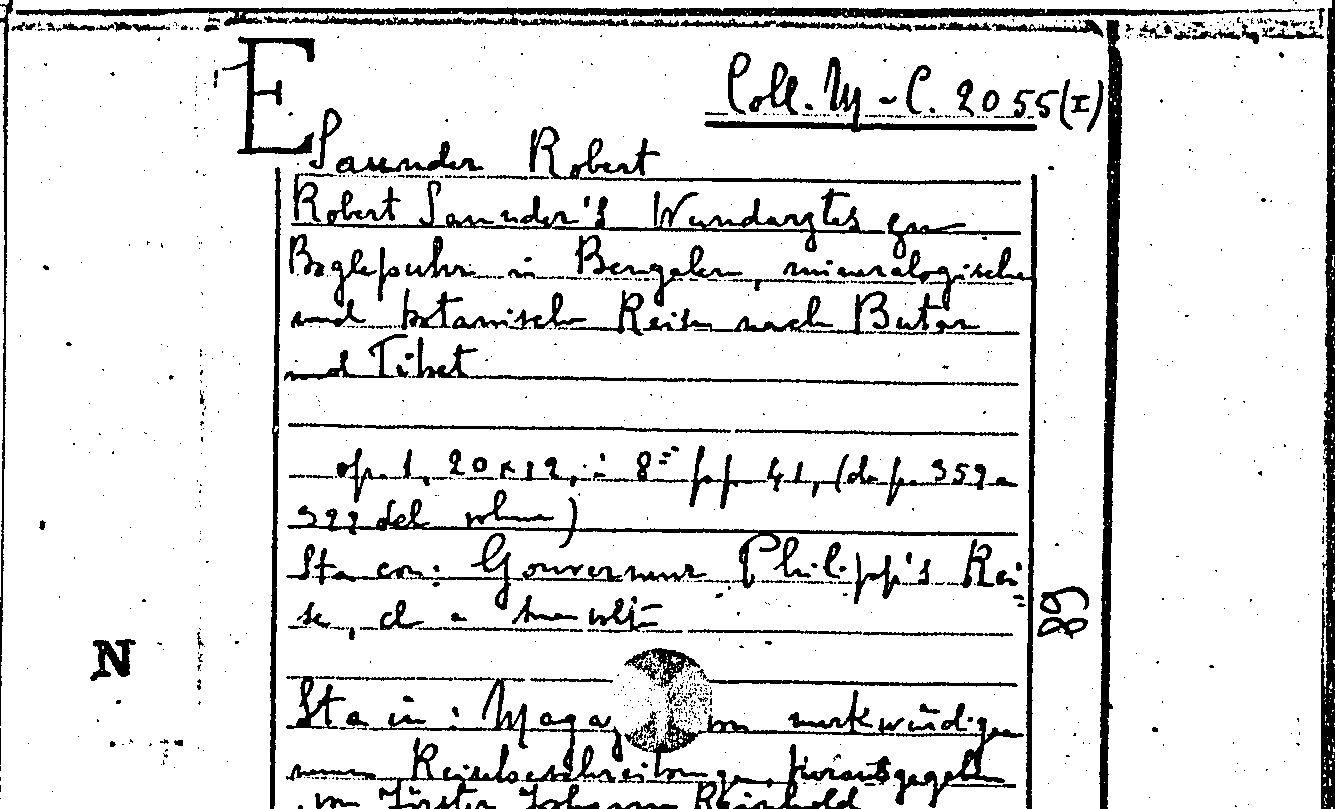 E
Coll. M-C. 2055(I)
Saunder Robert
Robert Saunder's Wundarztes zu
Boglepuhr in Bengalen, mineralogische
und botanische Reise nach Butan
und Tibet
op. 1, 20x12, in 8° pp. 41, (da p. 359 a
399 del volume)
Sta con: Gouverneur Philipp's Rei
se, 
Sta in: Magaz von merkwürdigen
neuen Reisebeschreibungen,
von Förster Johann Reinhold
89
N